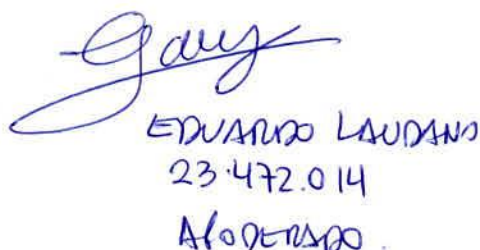 EDUARDO LAUDANO
23.472.014
APODERADO.